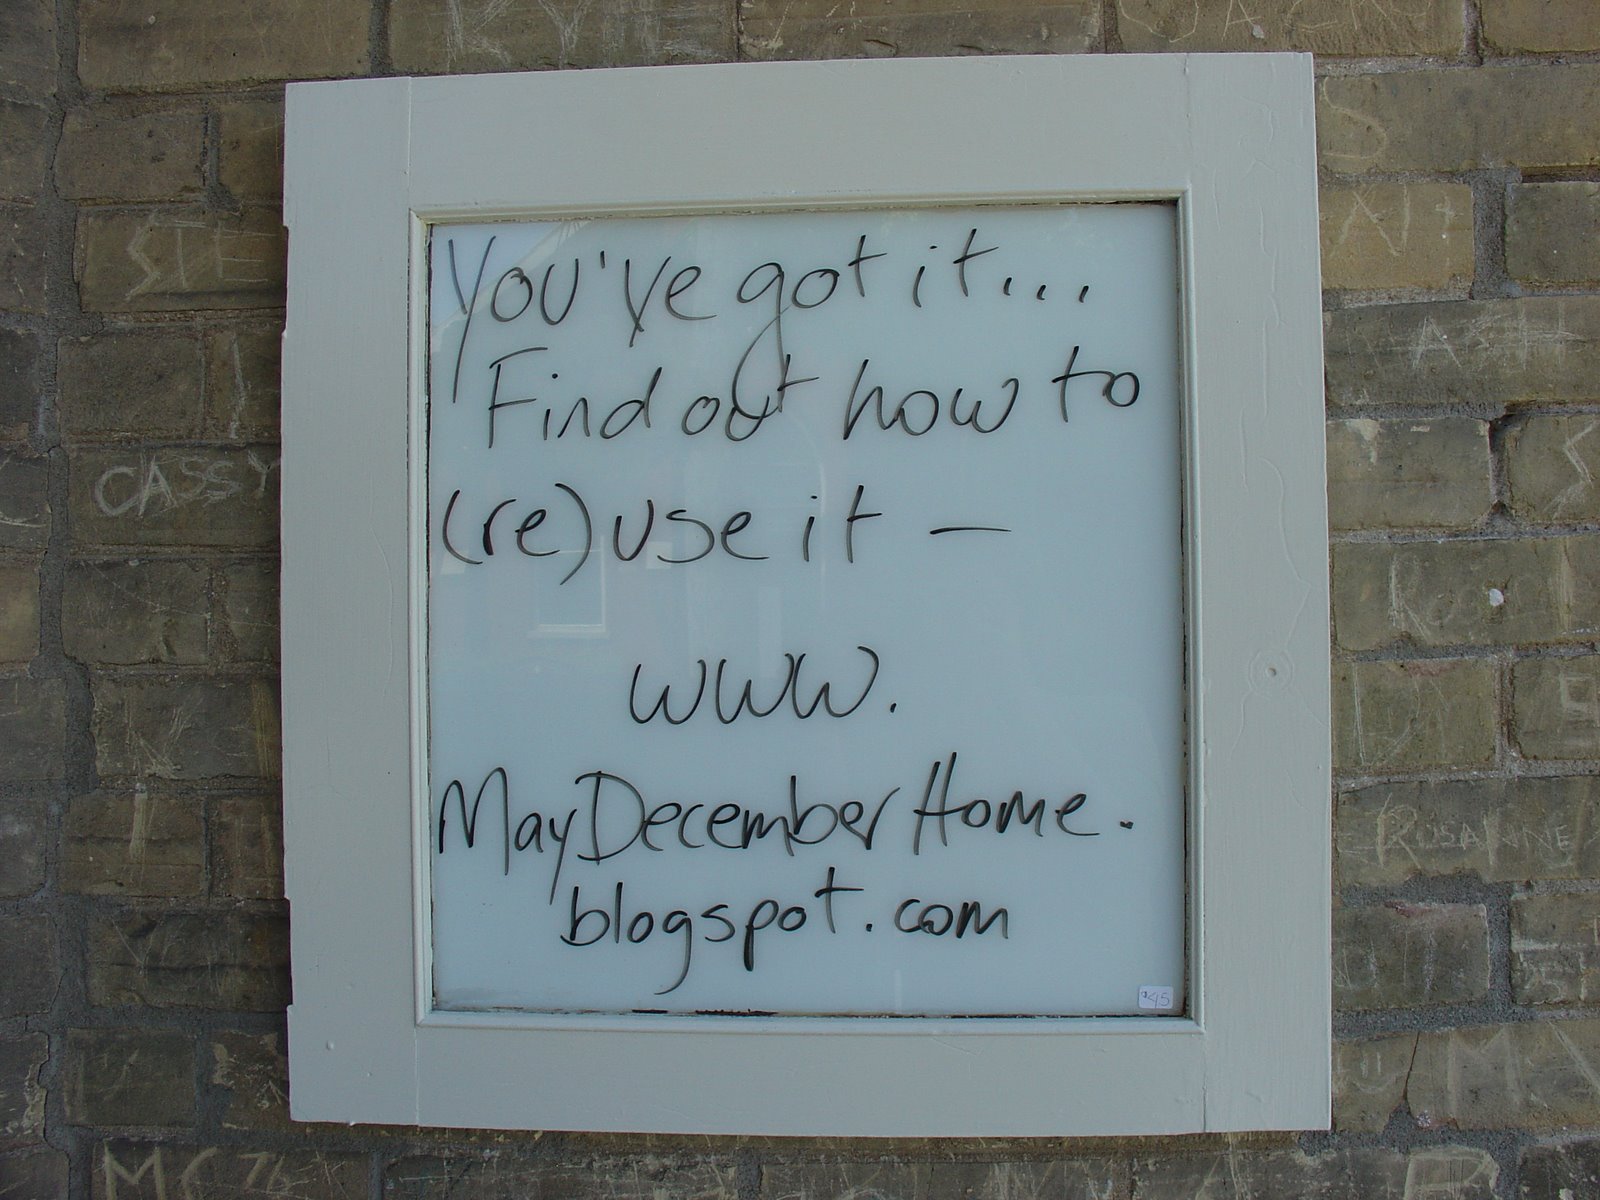 You've got it...
Find out how to
(re)use it —
www.
MayDecemberHome.
blogspot.com
$45
STE
CASSY
ASH
ROSANNE
MC 76